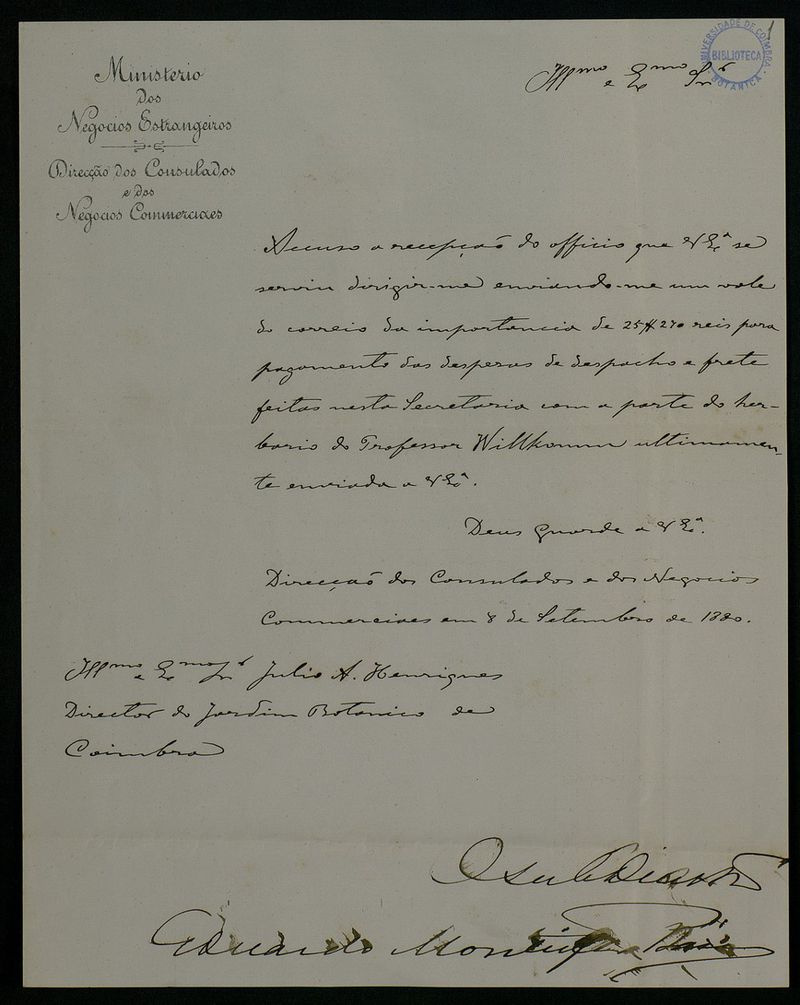 Ministerio
dos
Negocios Estrangeiros
Direcção dos Consulados
e dos
Negocios Commerciaes
UNIVERSIDADE DE COIMBRA
BIBLIOTECA
BOTANICA
Illmo e Exmo Snr
Accuso a recepção do officio que V Exª se
serviu dirigir-me enviando-me um vale
do correio da importancia de 25$270 reis para
pagamento das despezas de despacho e frete
feitas nesta Secretaria com a parte do her-
bario do Professor Willkomm ultimamen-
te enviada a V Exª.
Deus Guarde a V Exª.
Direcção dos Consulados e dos Negocios
Commerciaes em 8 de Setembro de 1880.
Illmo e Exmo Snr Julio A. Henriques
Director do Jardim Botanico de
Coimbra
O Sub Director
Eduardo